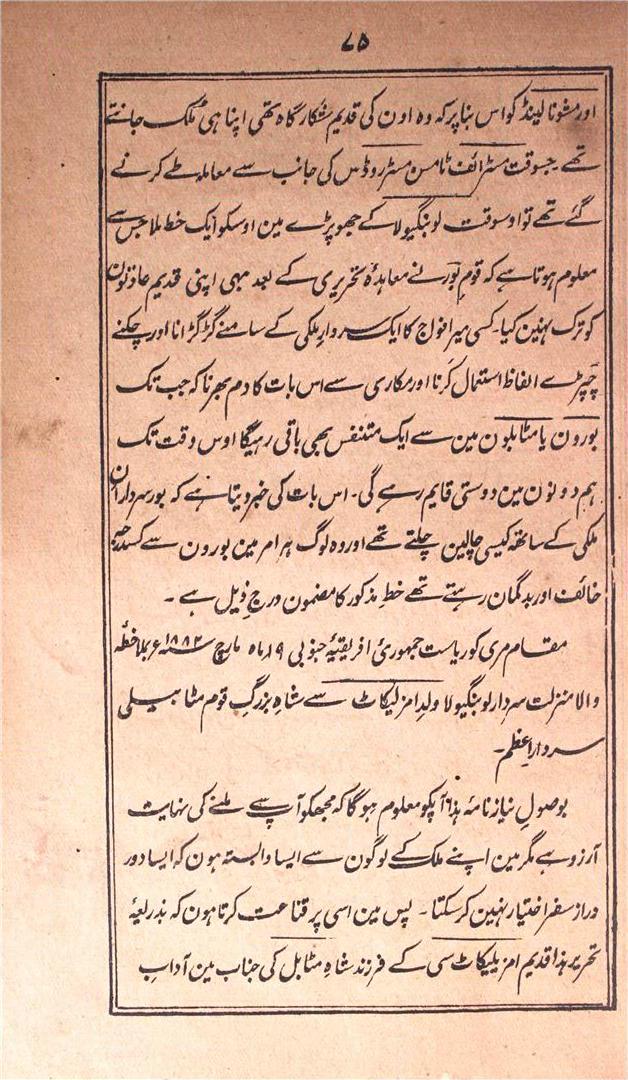 ۷۵
اور مشونالینڈ کو اس بنا پر کہ وہ اون کی قدیم شکار گاہ تھی اپنا ہی ملک جانتے
تھے جسوقت مسٹر ائف ٹامسن مسٹر روڈس کی جانب سے معاملہ طے کرنے
گئے تھے تو اوسوقت لوبنگیولا کے جھوپڑے مین اوسکو ایک خط ملا جس سے
معلوم ہوتا ہے کہ قوم بور نے معاہدۂ تحریری کے بعد مبھی اپنی قدیم عادتون
کو ترک نہین کیا۔ کسی میر افواج کا ایک سردار ملکی کے سامنے گڑگڑانا اور چکنے
چپڑے الفاظ استمال کرنا اور مکاری سے اس بات کا دم بھرنا کہ جب تک
بورون یا مٹابلون مین سے ایک متنفس بھی باقی رہیگا اوس وقت تک
ہم دونون مین دوستی قایم رہے گی۔ اس بات کی خبر دیتا ہے کہ بور سرداران
ملکی کے ساتھ کیسی چالین چلتے تھے اور وہ لوگ ہر امر مین بورون سے کسدرجہ
خائف اور بدگمان رہتے تھے خط مذکور کا مضمون درج ذیل ہے ۔
مقام مری کو ریاست جمہوریٔ افریقیۂ جنوبی ۱۹ ماہ مارچ سنہ ۱۸۸۲ع بملاحظہ
والا منزلت سردار لوبنگیولا ولد امزلیکاٹ سے شاہ بزرگ قوم مٹابیلی
سردار اعظم۔
بوصول نیاز نامہ ہذا آپکو معلوم ہوگا کہ مجھکو آپ سے ملنے کی نہایت
آرزو ہے مگر مین اپنے ملک کے لوگون سے ایسا وابستہ ہون کہ ایسا دور
دراز سفر اختیار نہین کرسکتا۔ پس مین اسی پر قناعت کرتا ہون کہ بذریعۂ
تحریر ہذا قدیم امزیلیکاٹ سی کے فرزند شاہ مٹابل کی جناب مین آداب